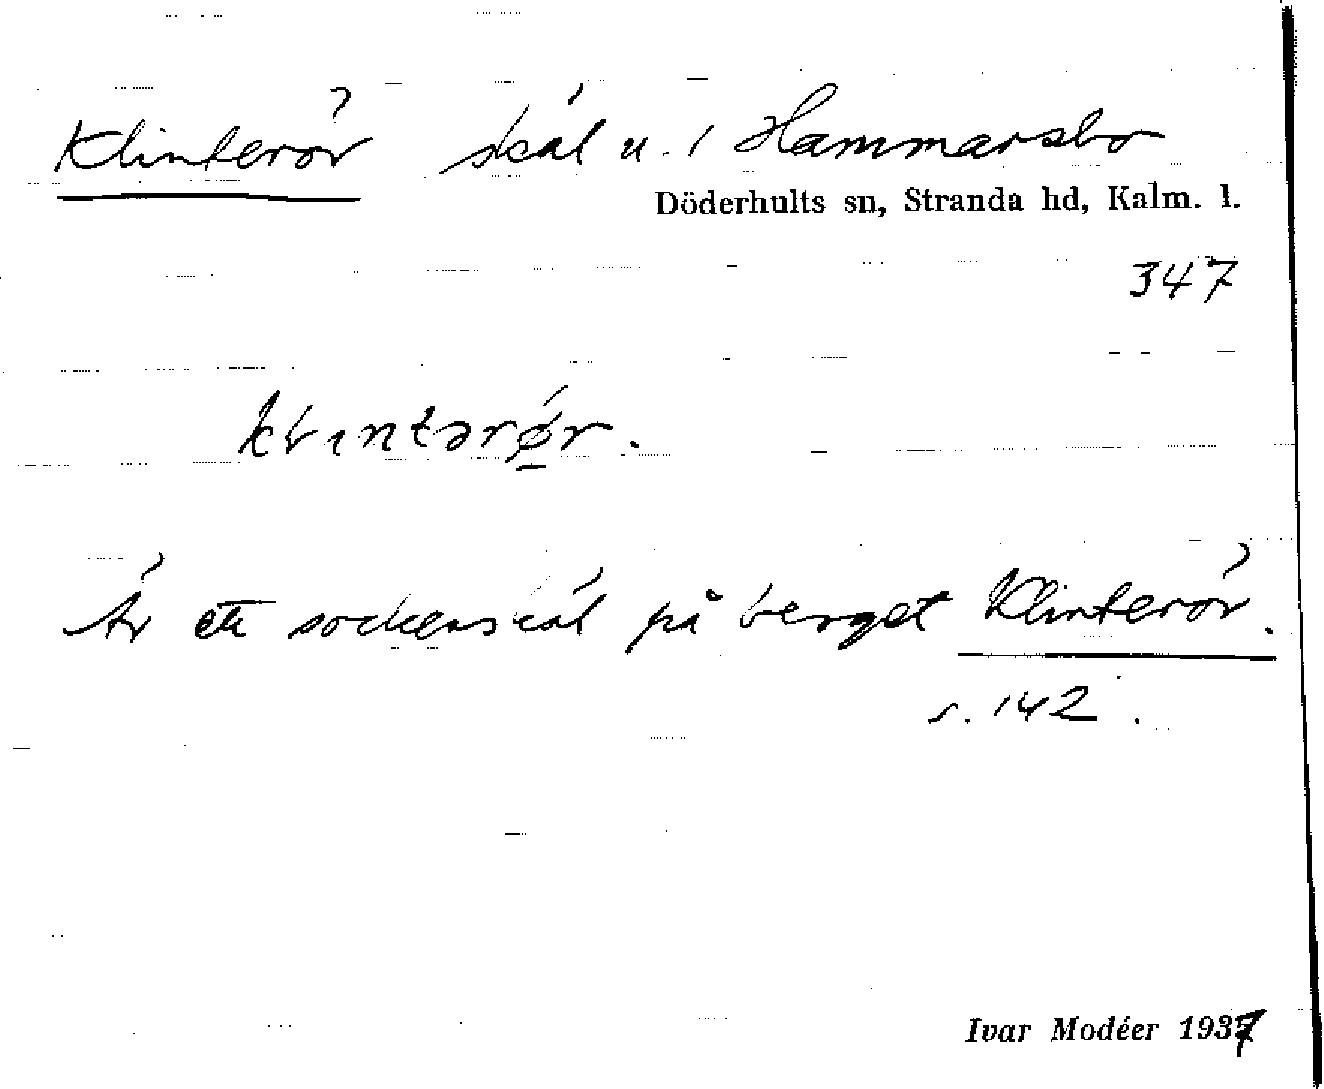 Klinterör skäl u. / Hammarsbo
Döderhults sn, Stranda hd, Kalm. l.
347
klintərør.
Är ett sockenskäl på berget Klinterör.
s. 142.
Ivar Modéer 1937